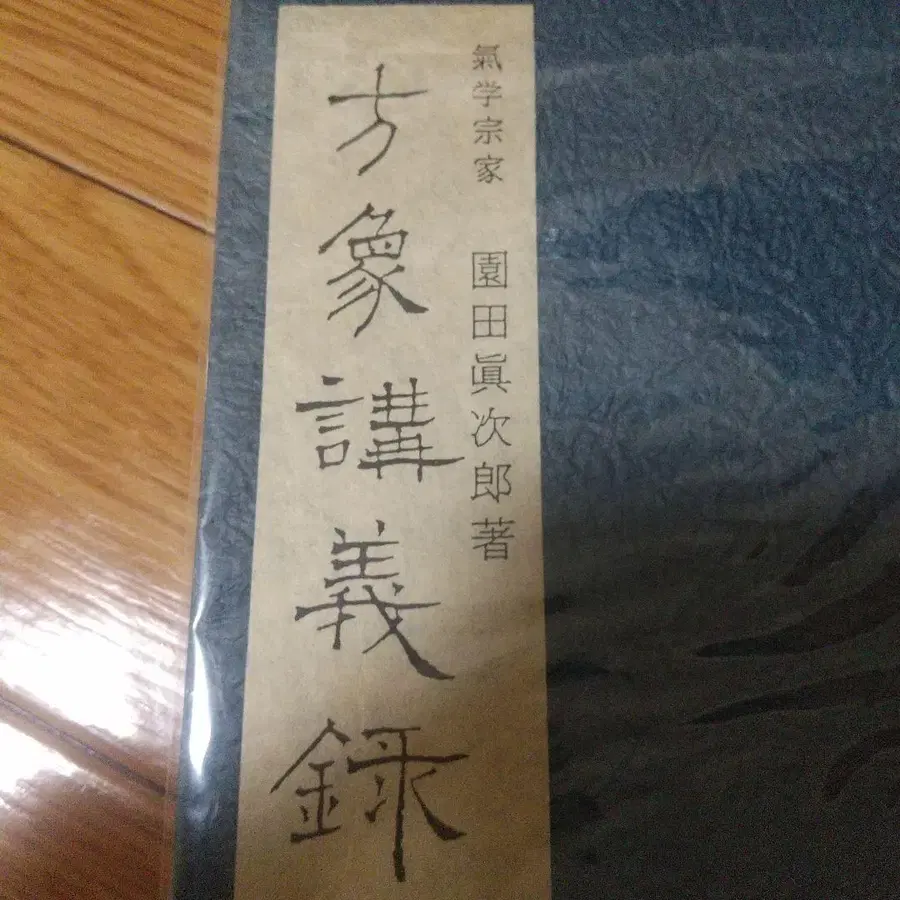 氣学宗家 園田眞次郎著
方象講義録